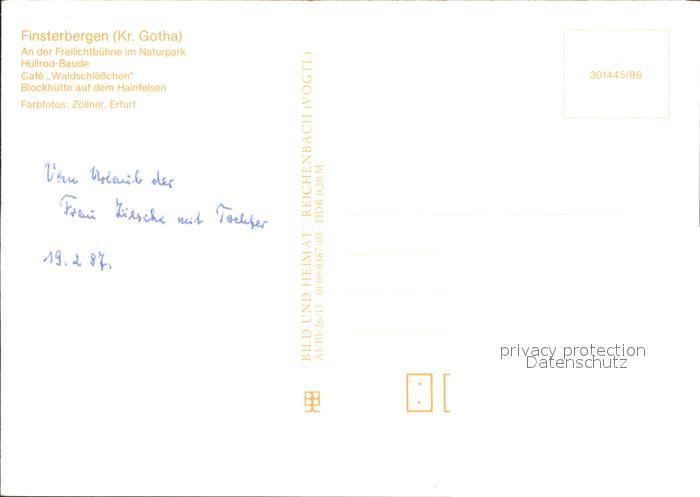 Finsterbergen (Kr. Gotha)
An der Freilichtbühne im Naturpark
Hüllrod-Baude
Café „Waldschlößchen"
Blockhütte auf dem Hainfelsen
Farbfotos: Zöllner, Erfurt
Vom Urlaub der
Frau mit Tochter
19. 2 87.
BILD UND HEIMAT · REICHENBACH (VOGTL)
A1/III/26/13 01 09 0387/05 DDR 0,20 M
301445/86
privacy protection
Datenschutz